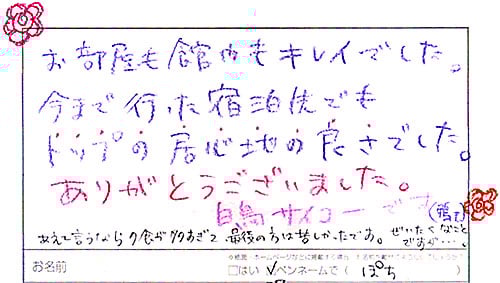 お部屋も館内もキレイでした。
今まで行った宿泊先でも
トップの居心地の良さでした。
ありがとうございました。
白鳥サイコーです(鴨も)
あえて言うなら夕食が多すぎて、最後の方は苦しかったです。ぜいたくなこと
ですが…。
お名前
□はい ☑ペンネームで( ぽち